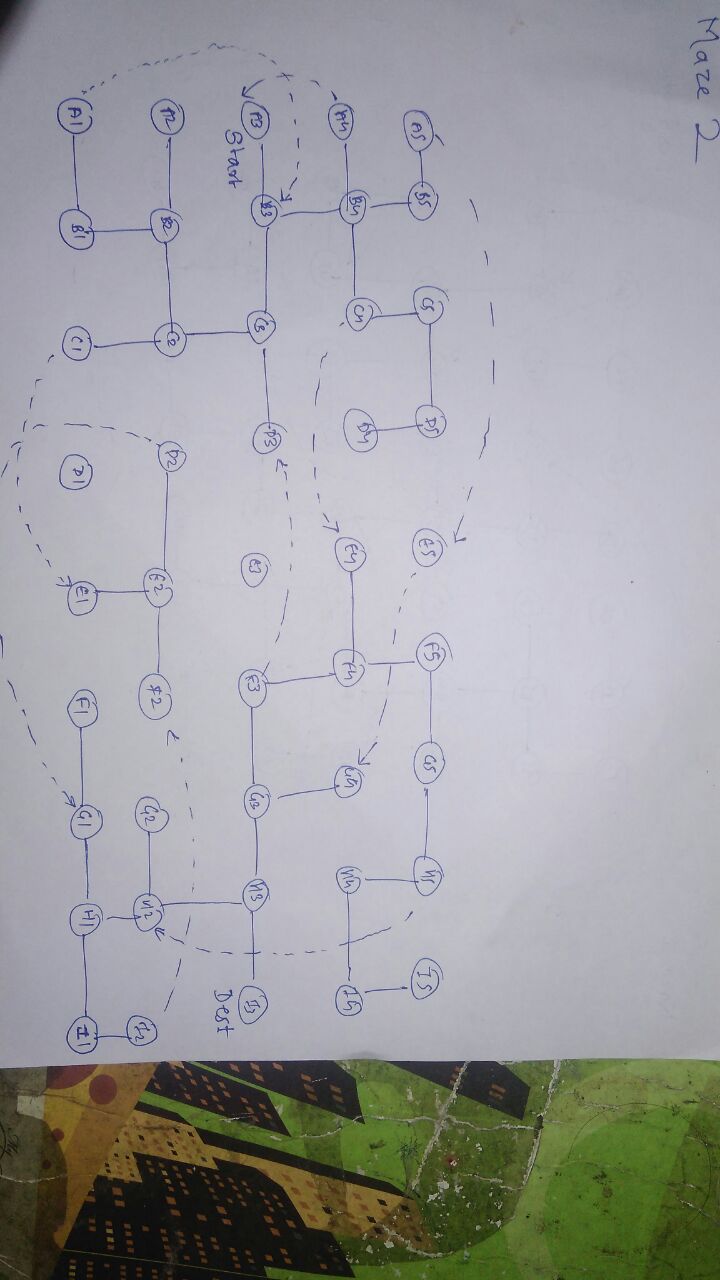 Maze 2
A5 B5 C5 D5 E5 F5 G5 H5 I5
A4 B4 C4 D4 E4 F4 G4 H4 I4
A3 B3 C3 D3 E3 F3 G3 H3 I3
Start Dest
A2 B2 C2 D2 E2 F2 G2 H2 I2
A1 B1 C1 D1 E1 F1 G1 H1 I1